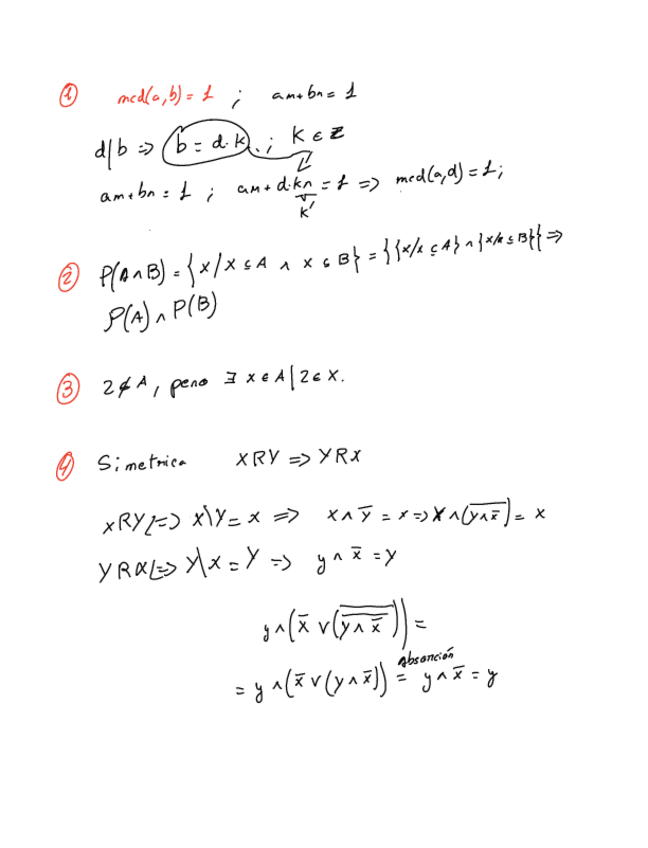 ① mcd(a,b) = 1 ; am+bn = 1
d|b => b = d·k ; k ∈ Z
am+bn = 1 ; am + d·kn = 1 => mcd(a,d) = 1;
k'
② P(A∧B) = {x/x ⊆ A ∧ x ⊆ B} = {{x/x ⊆ A} ∧ {x/x ⊆ B}} =>
P(A) ∧ P(B)
③ 2 ∉ A, pero ∃ x ∈ A | 2 ∈ x.
④ Simetrica xRy => yRx
xRy <=> x\y = x => x ∧ y̅ = x => x ∧ (y̅ ̅∧̅ ̅x̅̅) = x
yRx <=> y\x = y => y ∧ x̅ = y
y ∧ (x̅ ∨ (y̿ ̿∧̿ ̿x̿̅)) =
absorción
= y ∧ (x̅ ∨ (y ∧ x̅)) = y ∧ x̅ = y